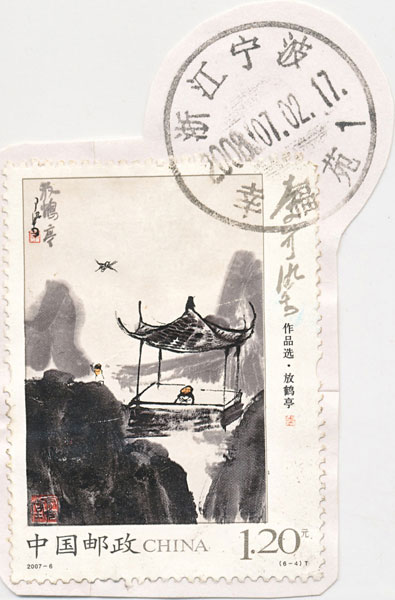 浙江宁波
2008.07.02.17.
幸福苑1
放鹤亭
李可染
作品选·放鹤亭
中国邮政 CHINA
1.20元
2007-6
(6-4)T